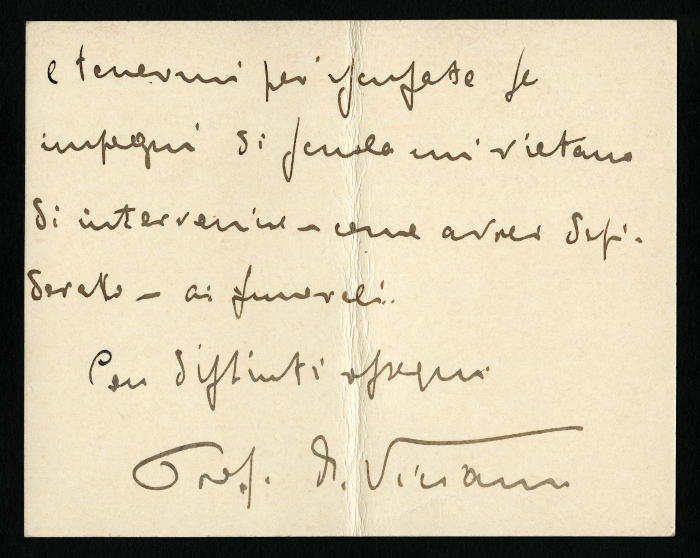 e tenermi per scusato se
impegni di scuola mi vietano
di intervenire – come avrei desi-
derato – ai funerali.
Con distinti ossequi
Prof. D. Viviani